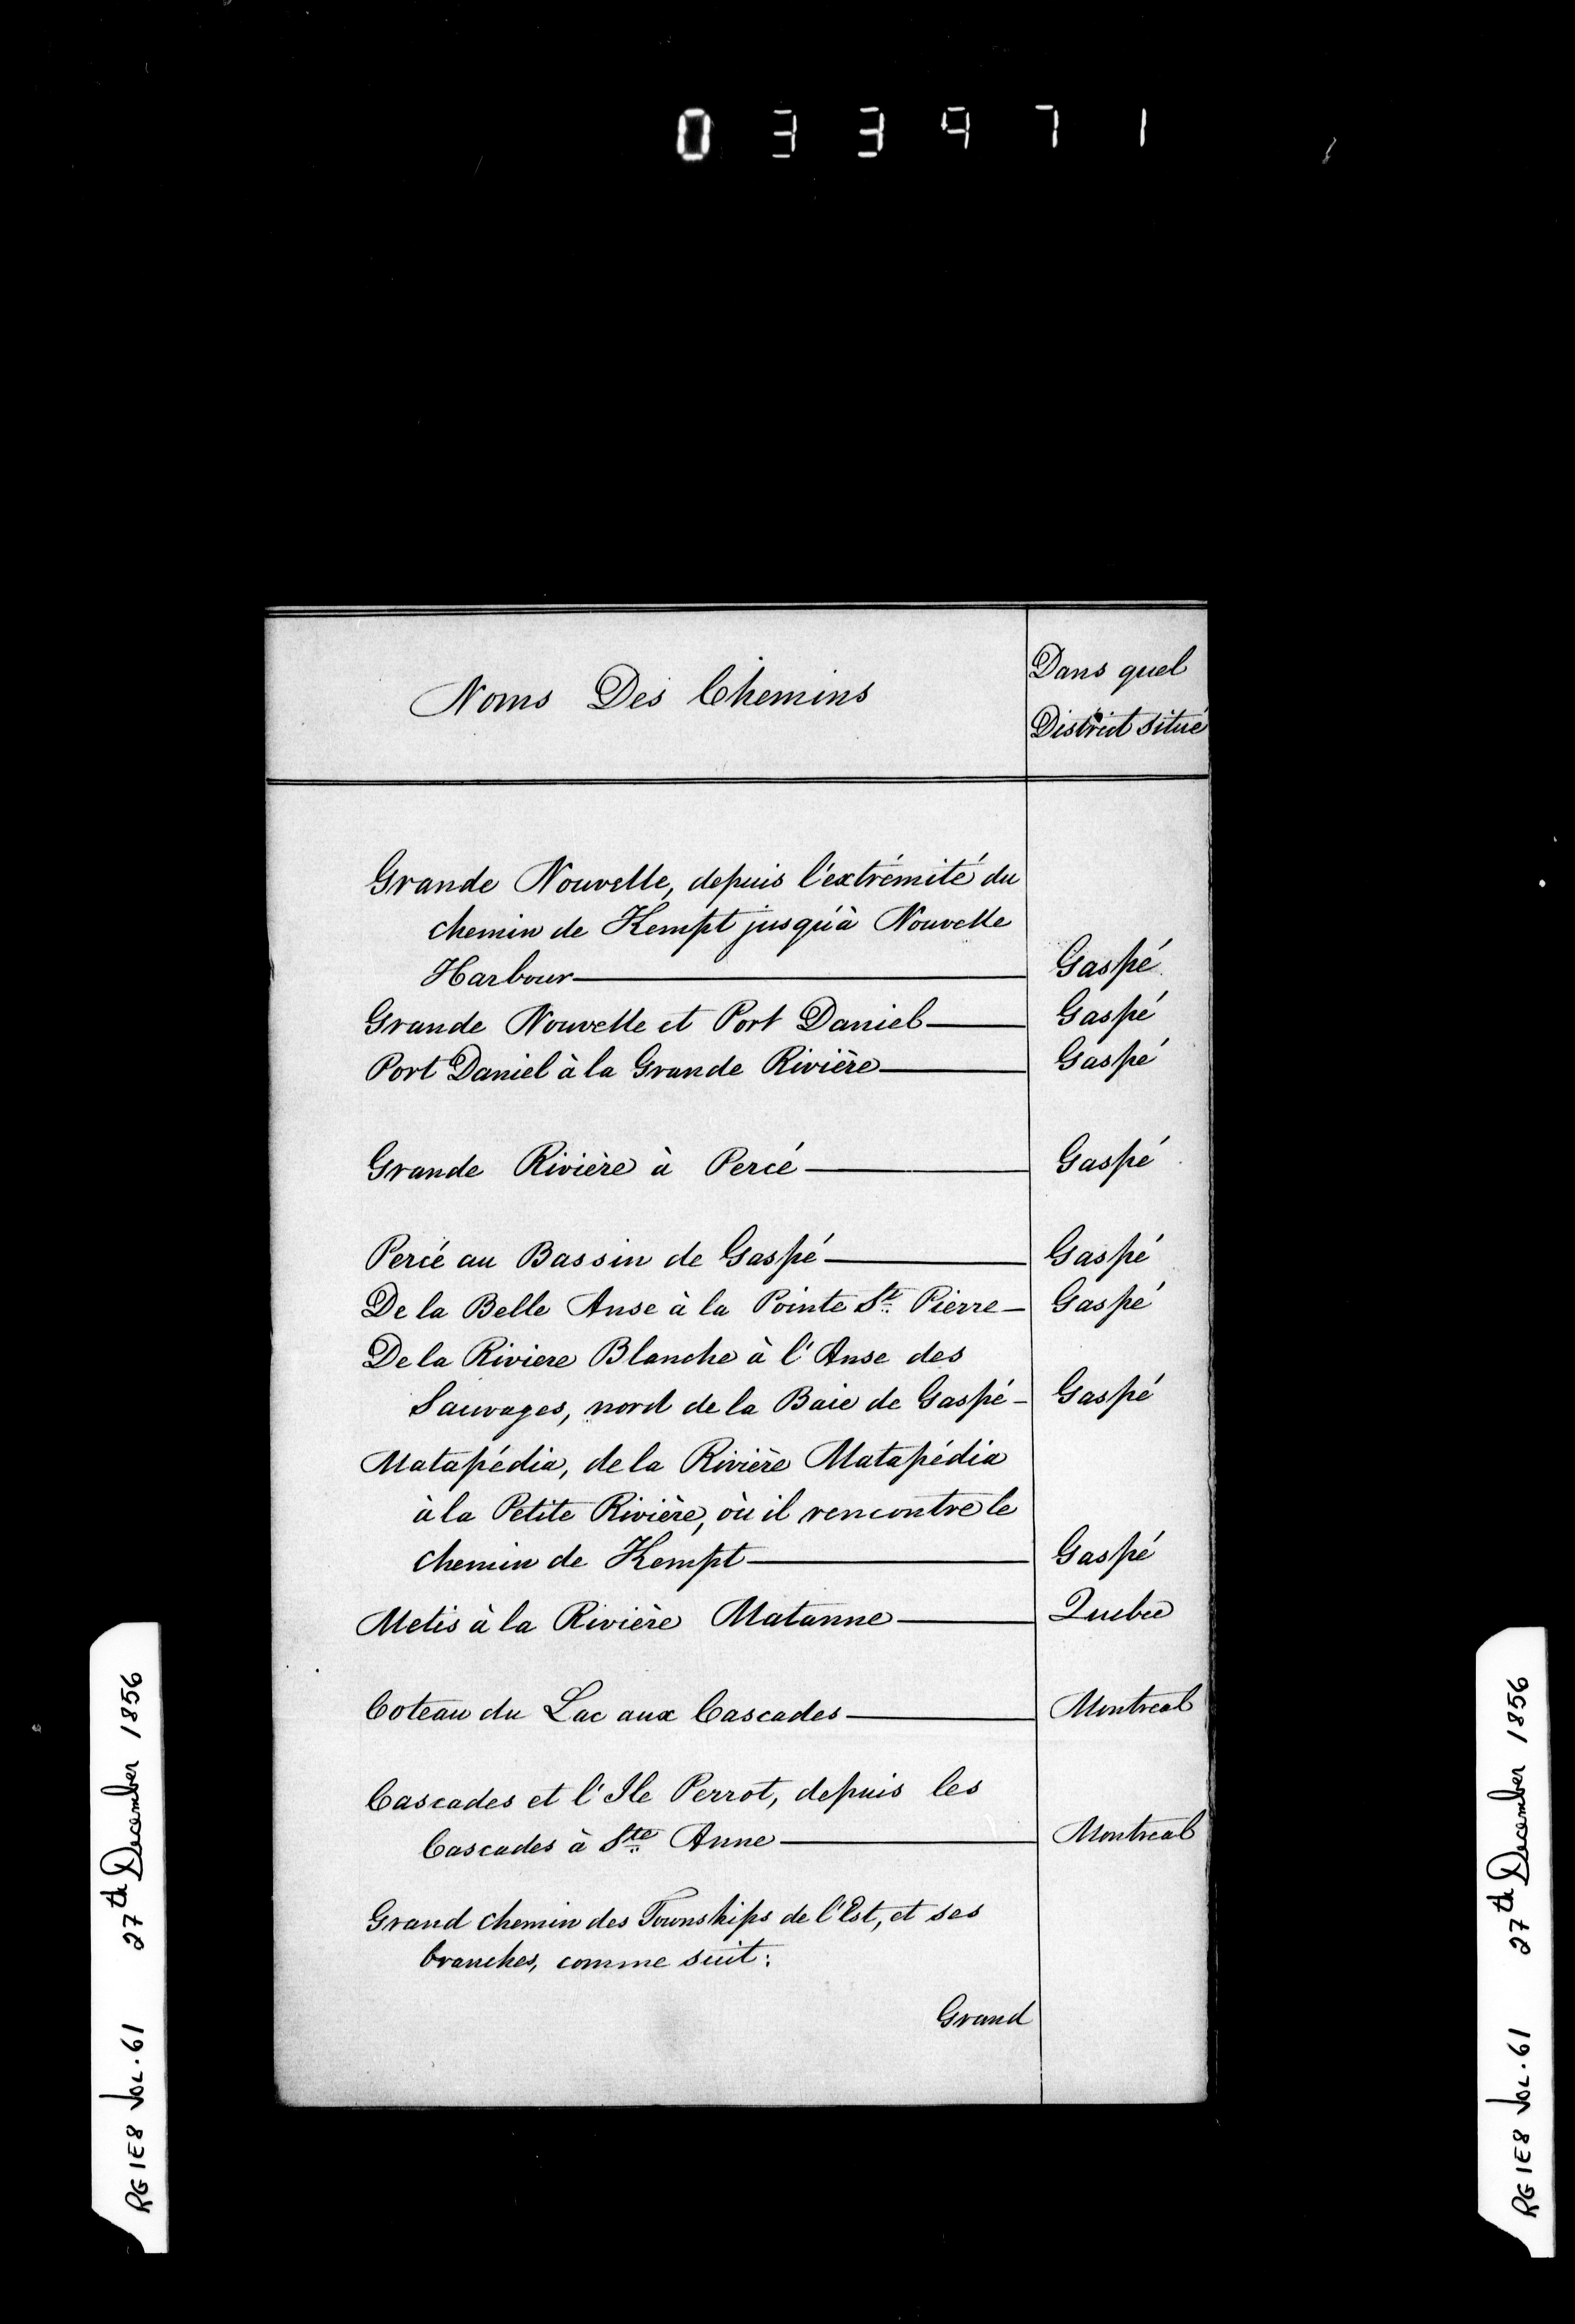 033971
Noms Des Chemins
Dans quel
District situé
Grande Nouvelle, depuis l'extrémité du
chemin de Kempt jusqu'à Nouvelle
Harbour Gaspé
Grande Nouvelle et Port Daniel Gaspé
Port Daniel à la Grande Rivière Gaspé
Grande Rivière à Percé Gaspé
Percé au Bassin de Gaspé Gaspé
De la Belle Anse à la Pointe St. Pierre Gaspé
De la Riviere Blanche à l'Anse des
Sauvages, nord de la Baie de Gaspé Gaspé
Matapédia, de la Rivière Matapédia
à la Petite Rivière, où il rencontre le
chemin de Kempt Gaspé
Metis à la Rivière Matanne Quebec
Coteau du Lac aux Cascades Montreal
Cascades et l'Ile Perrot, depuis les
Cascades à Ste. Anne Montreal
Grand chemin des Townships de l'Est, et ses
branches, comme suit:
Grand
RG 1E8 VOL.61 27th December 1856
RG 1E8 VOL.61 27th December 1856